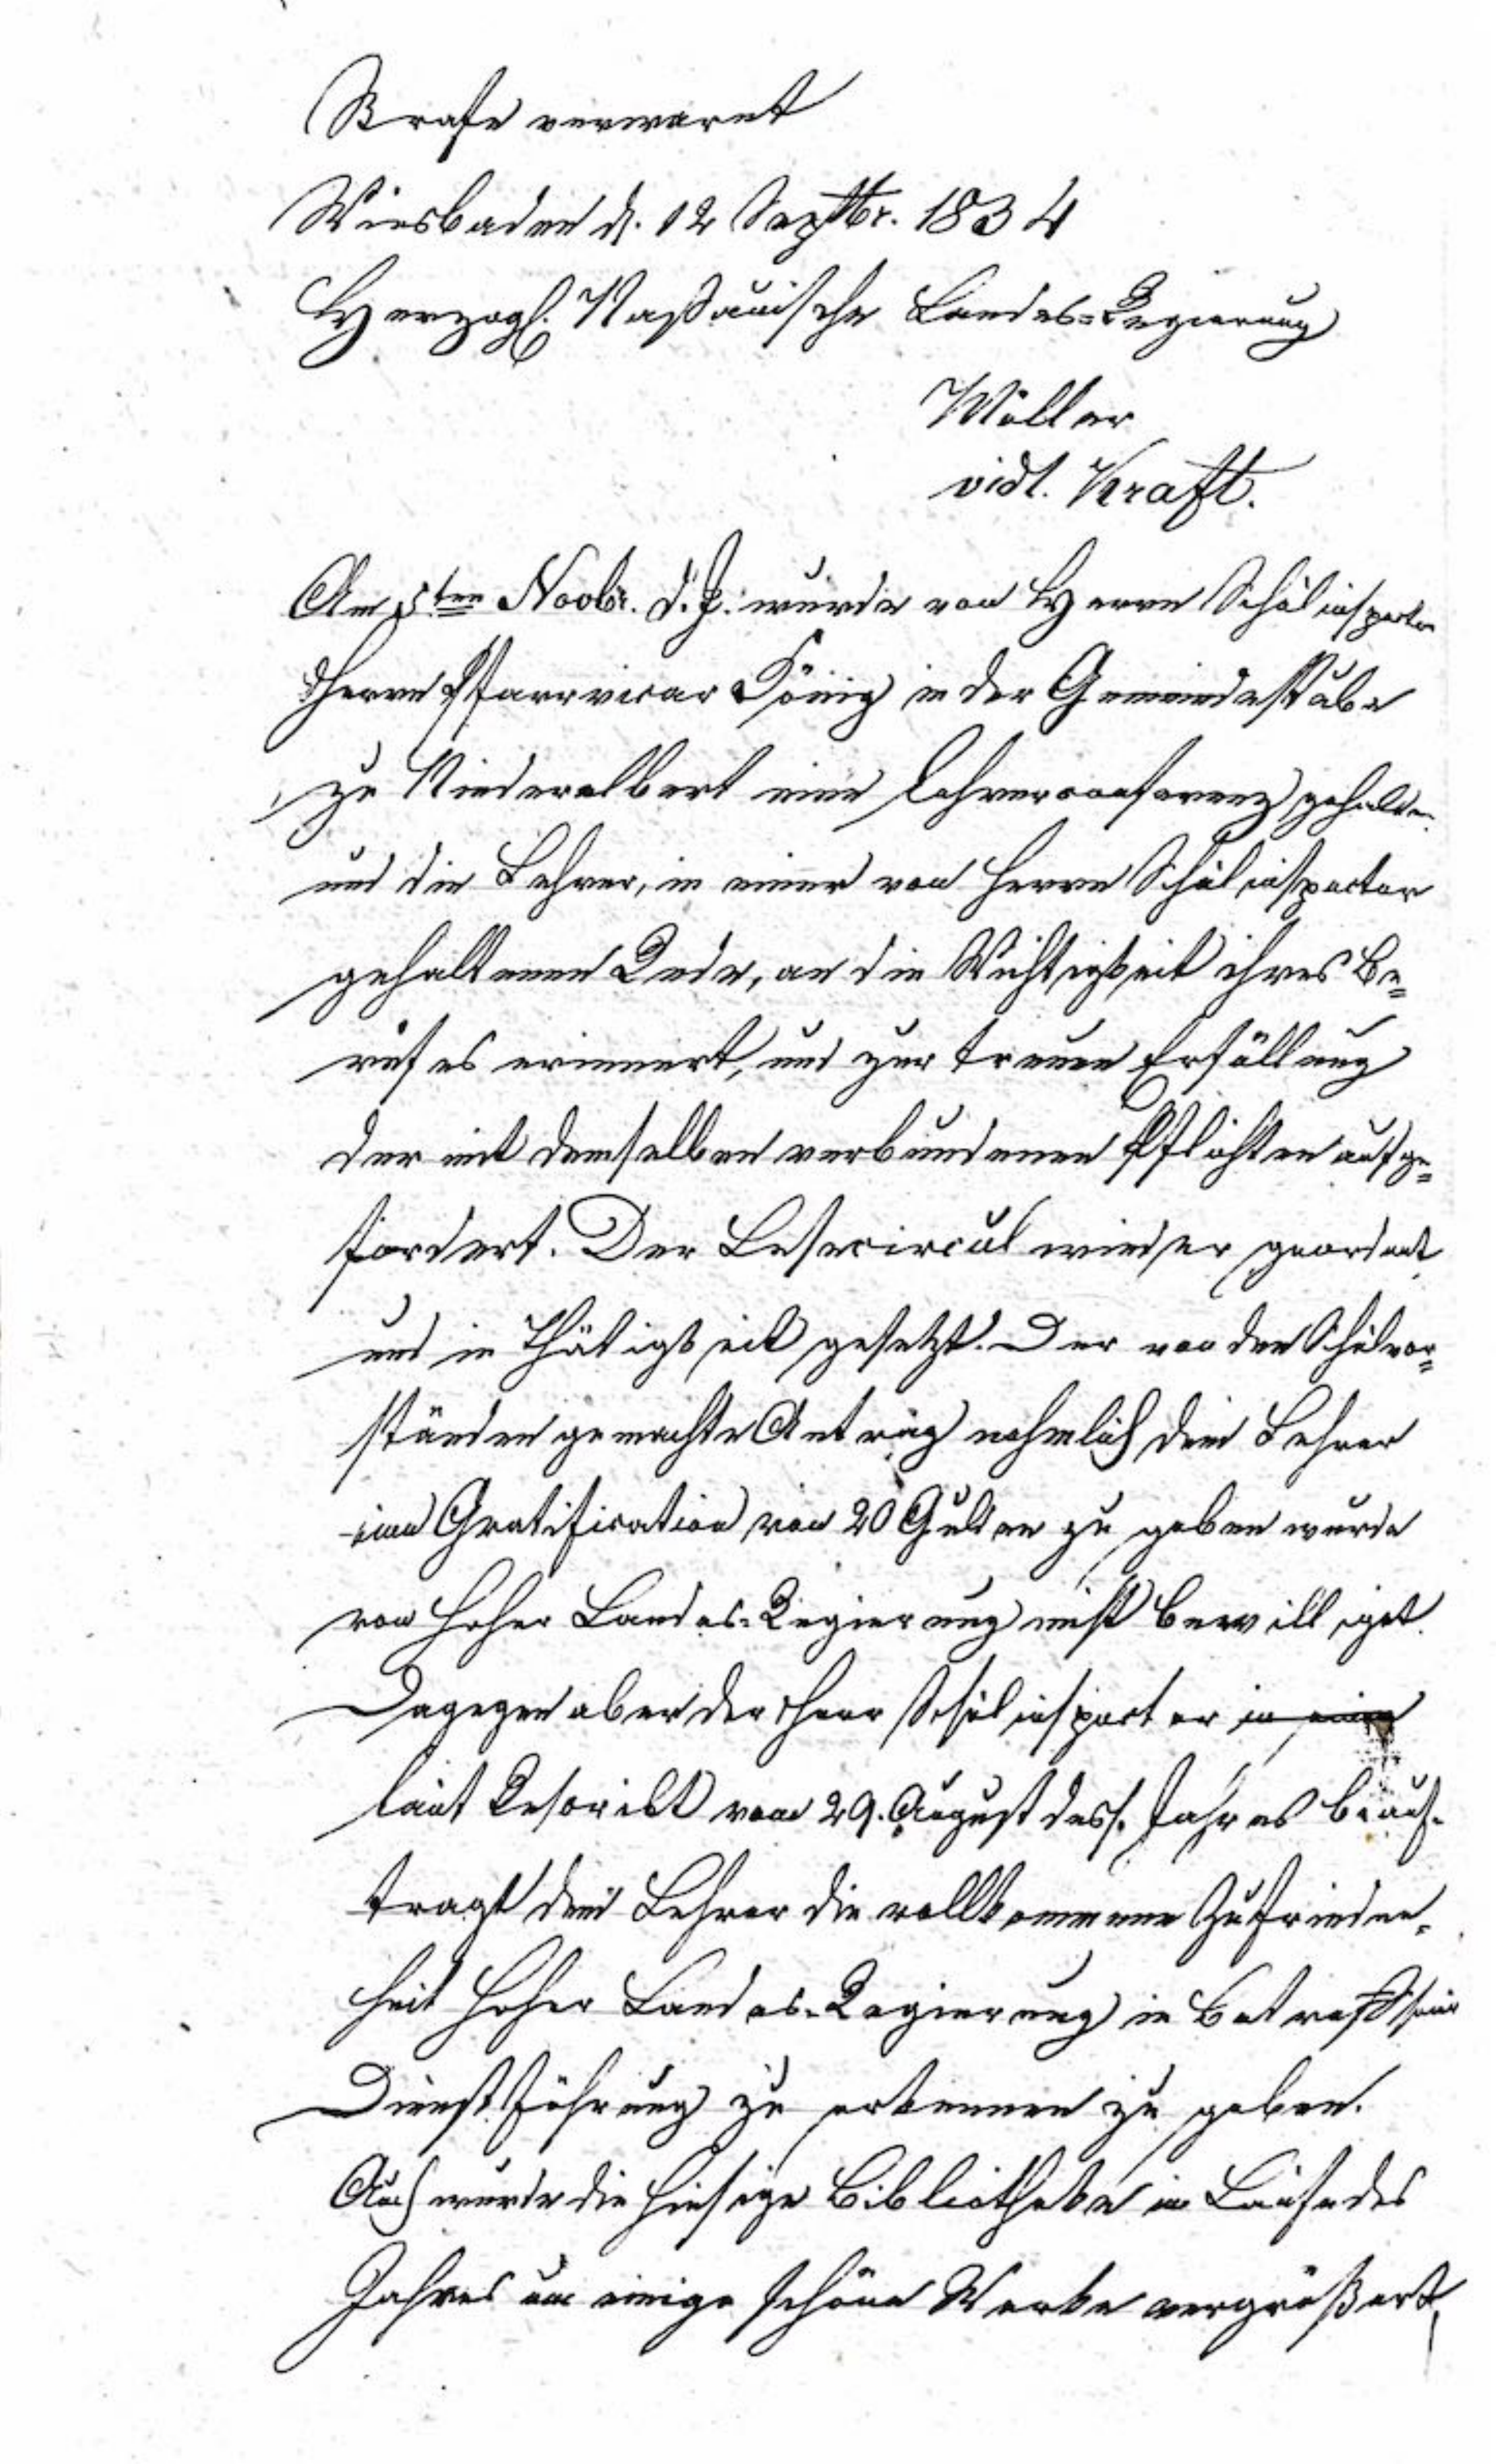 Strafe verwarnt
Wiesbaden d. 12 Septbr. 1834
Herzogl. Naßauische Landes=Regierung
Möller
vidt. Kraft.
Am 5ten Novbr. d. J. wurde von Herrn Schulinspector
Herrn Pfarrvicar König in der Gemeindestube
zu Niederelbert eine Lehrerconferenz gehalten
und die Lehrer, in einer von Herrn Schulinspector
gehaltenen Rede, an die Wichtigkeit ihres Be=
rufes erinnert, und zur treuen Erfüllung
der mit demselben verbundenen Pflichten aufge=
fordert. Der Lesecircul wieder geordnet
und in Thätigkeit gesetzt. Der von den Schulvor=
ständen gemachte Antrag nehmlich dem Lehrer
eine Gratification von 20 Gulden zu geben wurde
von hoher Landes=Regierung nicht bewilliget.
Dagegen aber der Herr Schulinspector in einem
laut Rescript vom 29. August dess. Jahres beauf=
tragt dem Lehrer die vollkommene Zufrieden=
heit hoher Landes=Regierung in Betreff seiner
Dienstführung zu erkennen zu geben.
Auch wurde die hiesige Bibliotheke im Laufe des
Jahres um einige schöne Werke vergrößert,